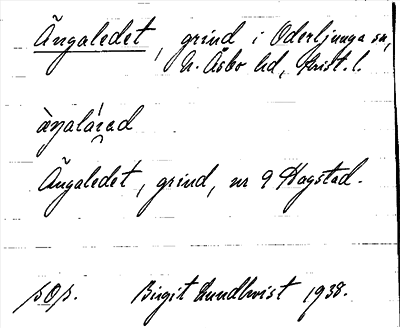 Ängaledet, grind i Oderljunga sn,
N. Åsbo hd, Krist. l.
àŋalá́ꝛad
Ängaledet, grind, nr 9 Hagstad.
sOs. Birgit Lundkvist 1938.